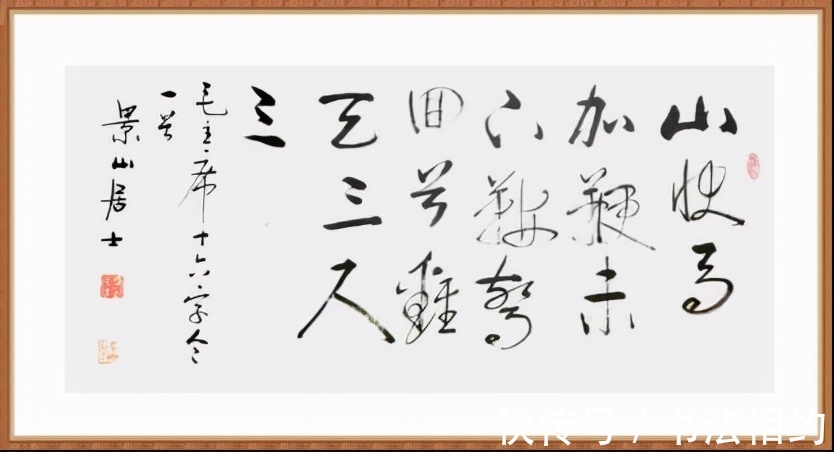 山快马
加鞭未
下鞍驚
回首離
天三尺
三
毛主席十六字令
一首
景山居士
快传号 / 书法相约